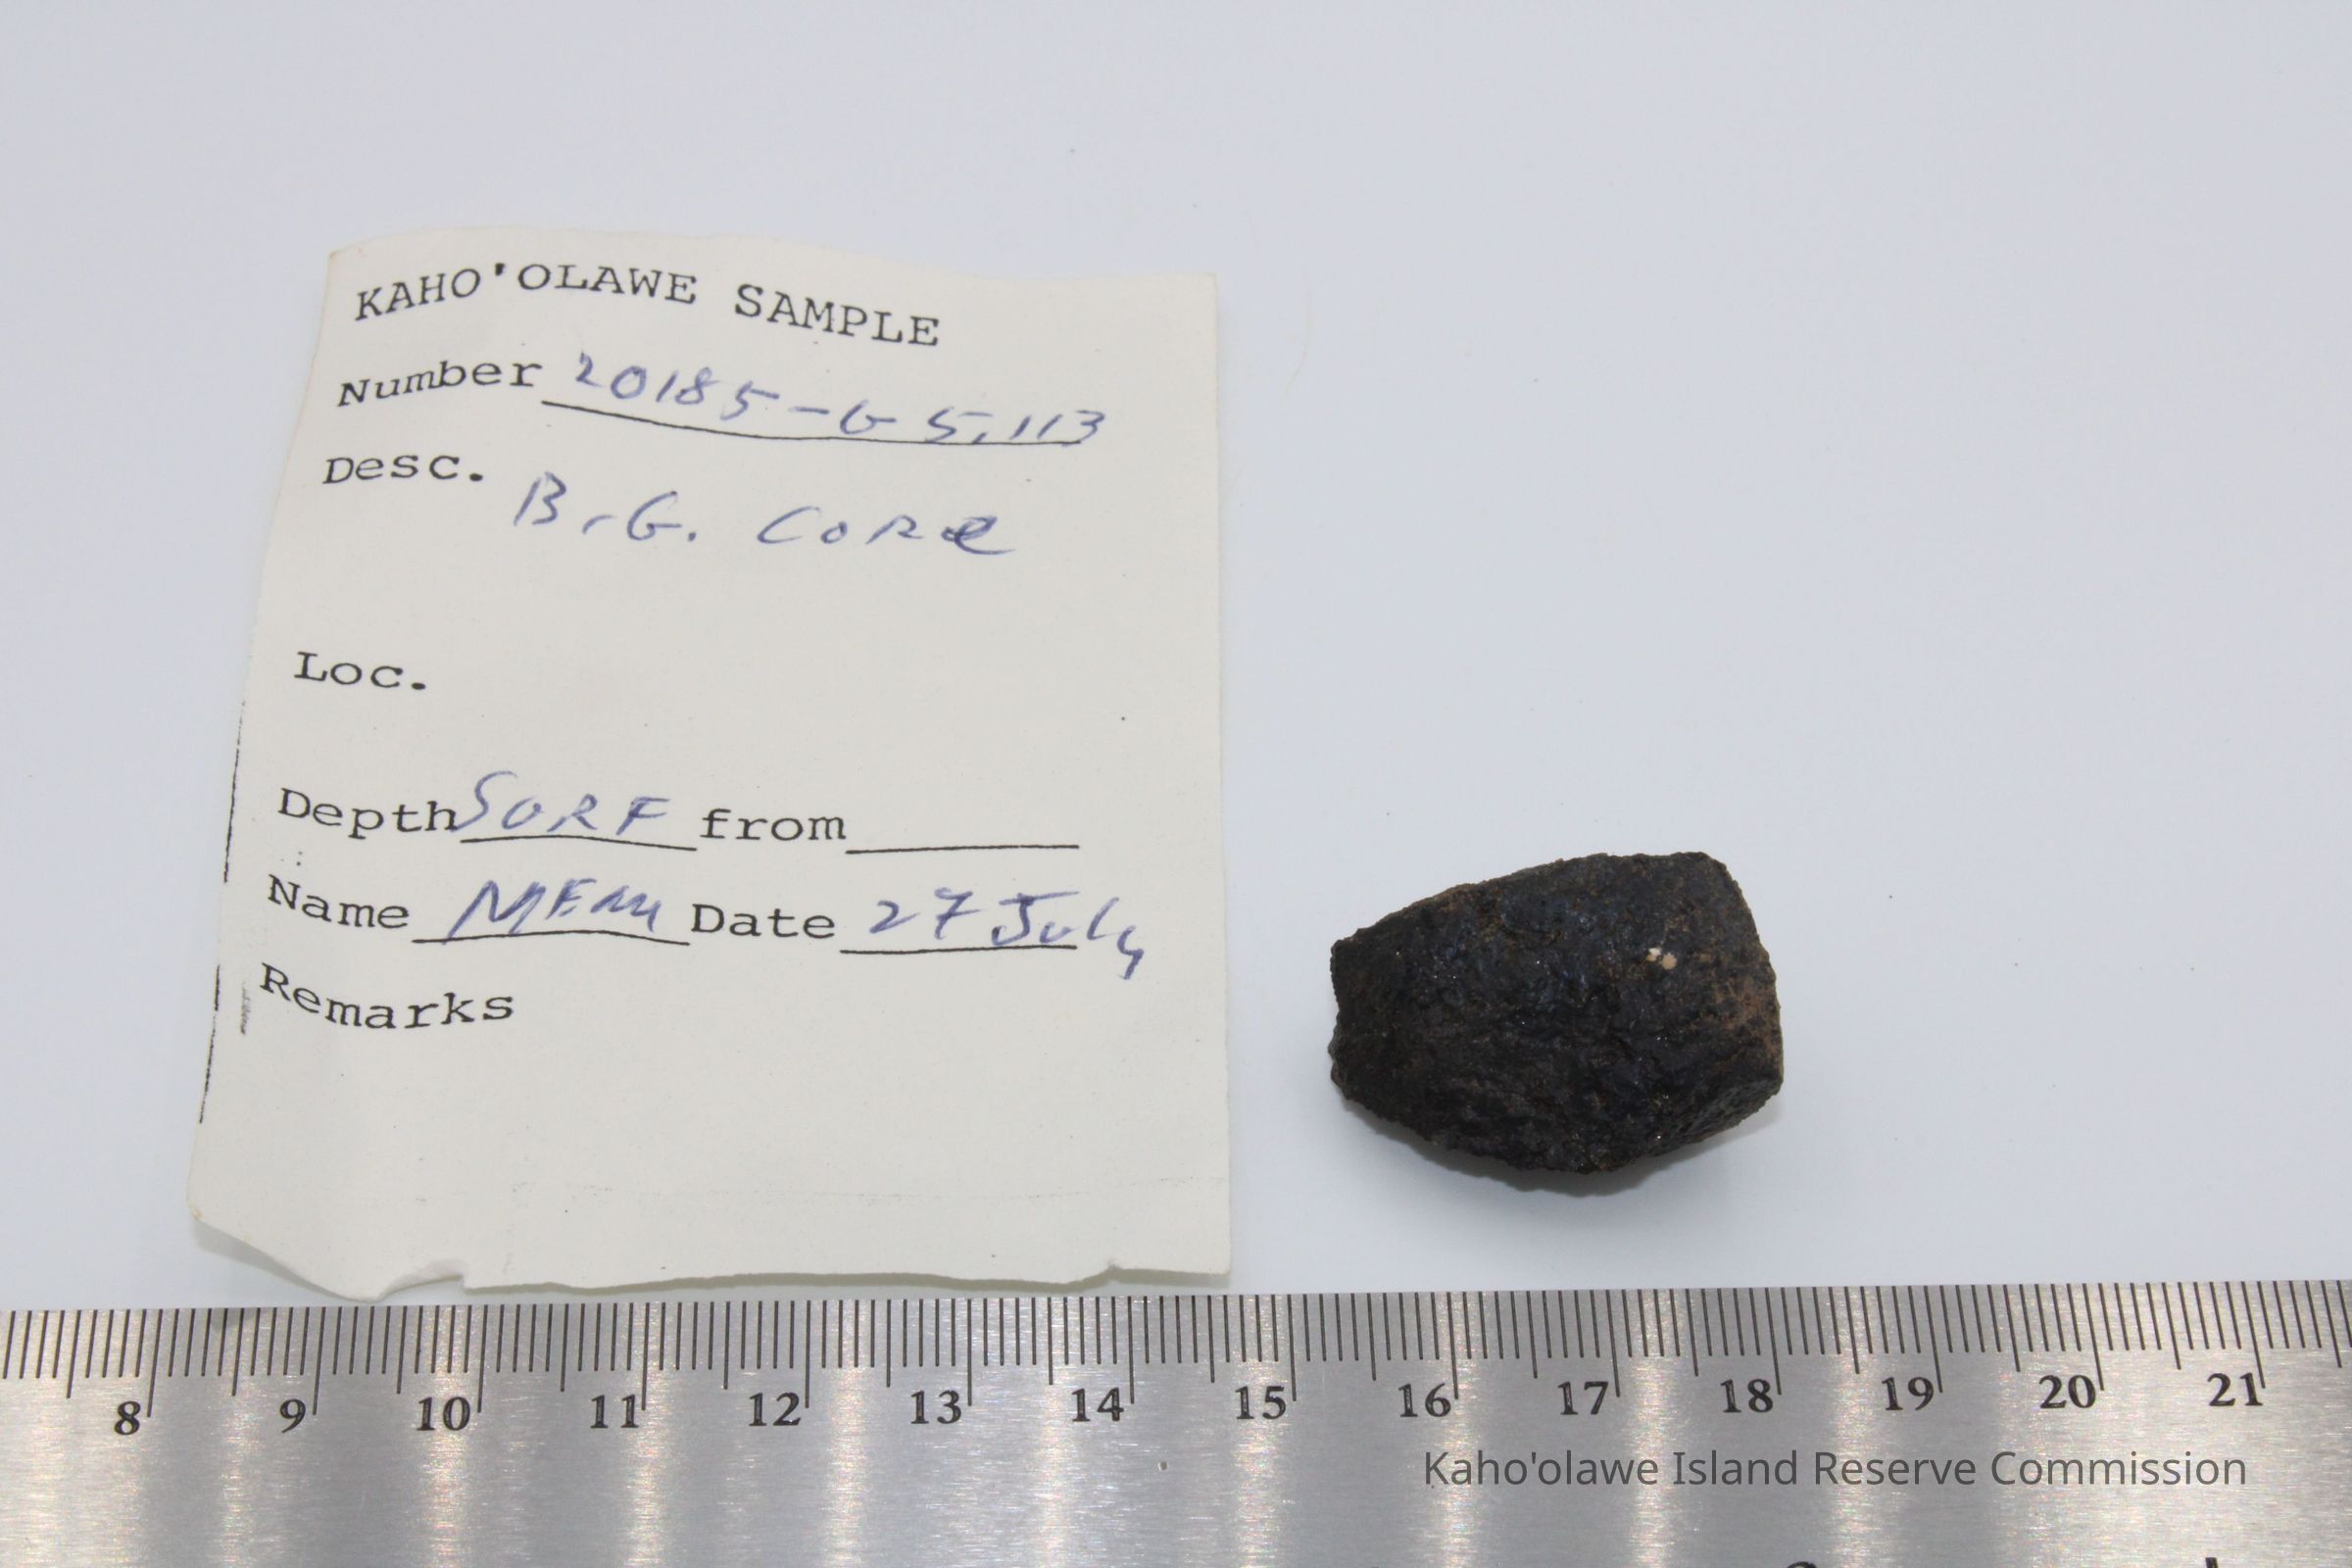 KAHO'OLAWE SAMPLE
Number 20185-G5.113
Desc. B.G. CORE
Loc.
Depth SURF from
Name Date 27 July
Remarks
8 9 10 11 12 13 14 15 16 17 18 19 20 21
Kaho'olawe Island Reserve Commission